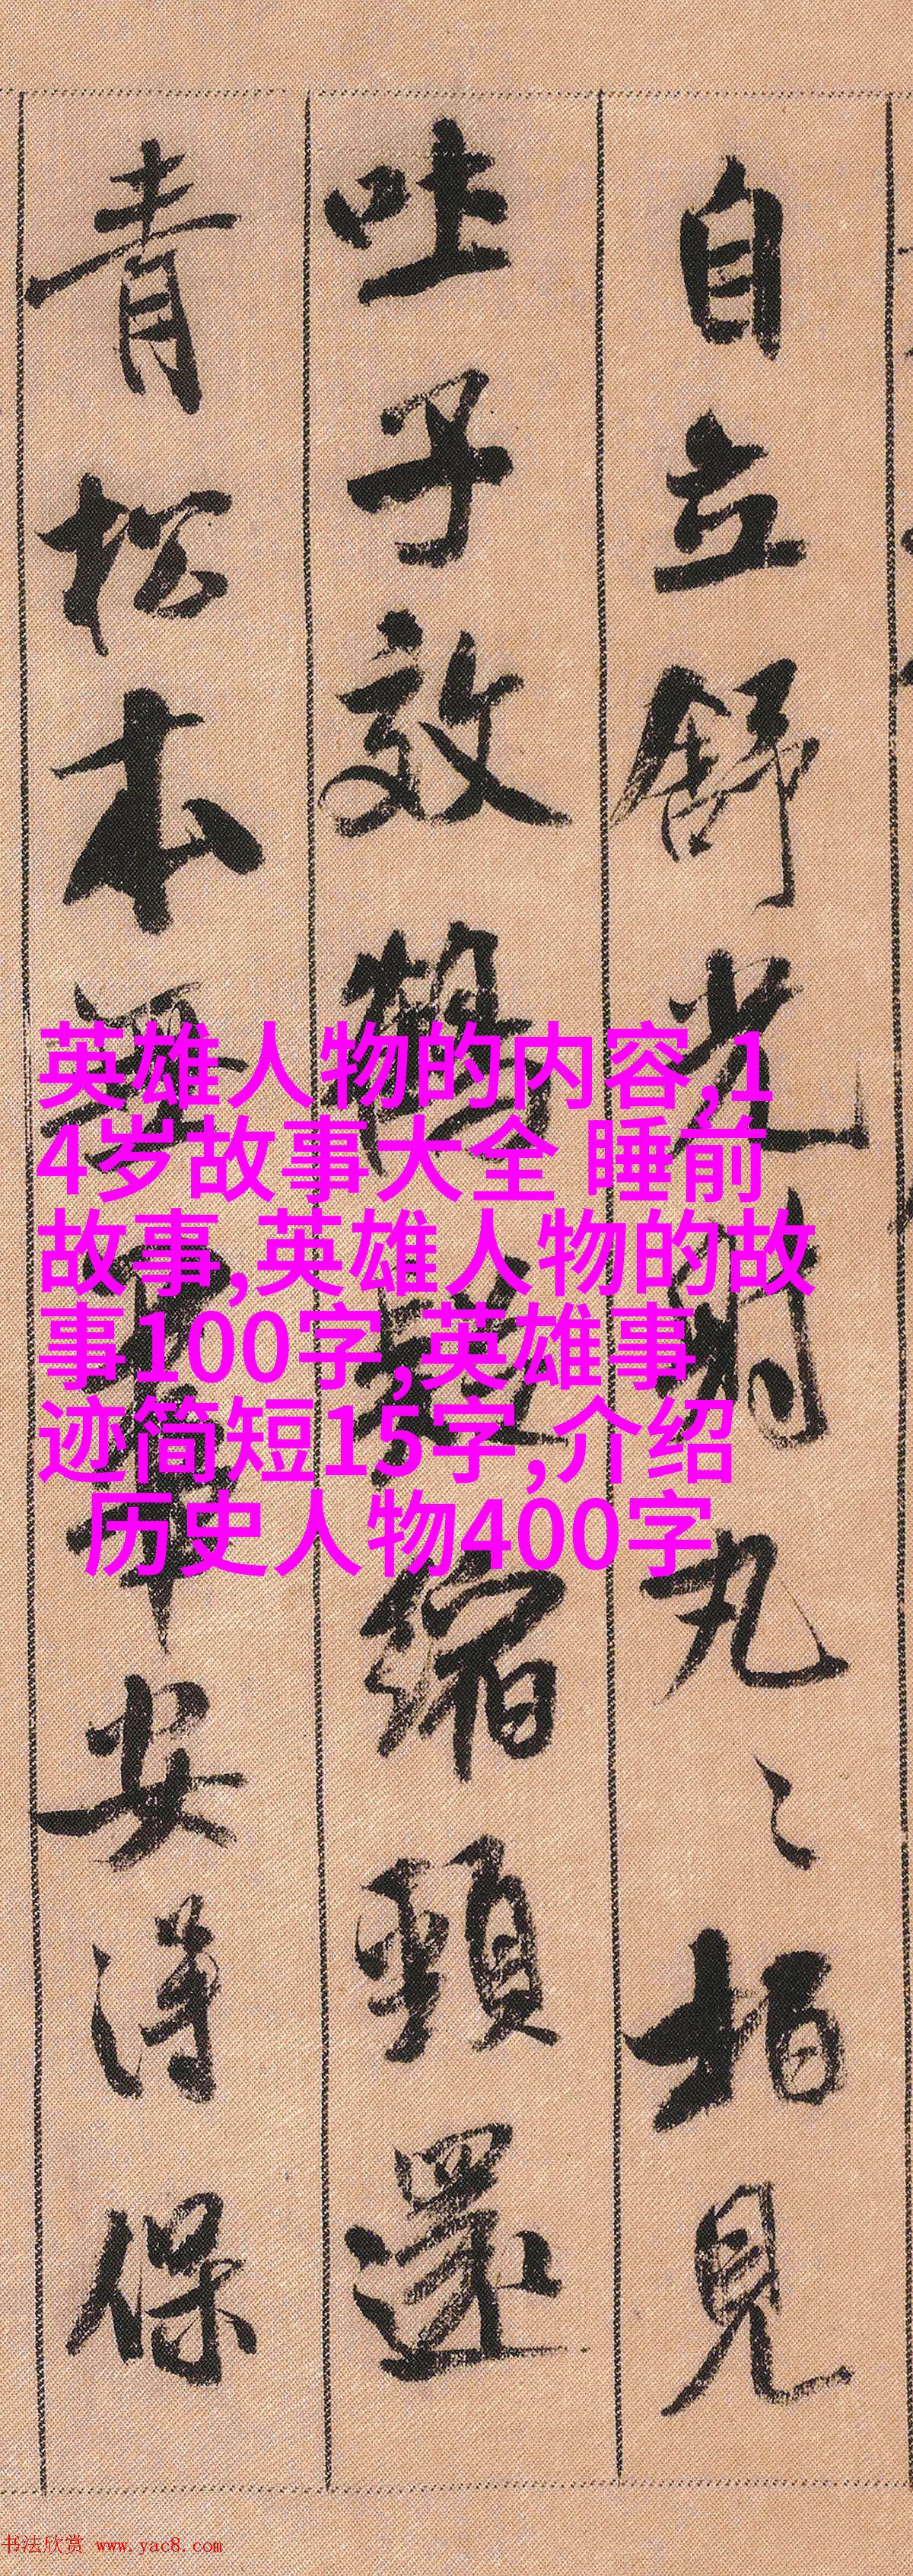 自立舒光射丸〻柏見
吐子效鶴疑縮頸還
青松本無華安得保
英雄人物的内容,1
4岁故事大全 睡前
故事,英雄人物的故
事100字,英雄事
迹简短15字,介绍
历史人物400字
书法欣赏 www.yac8.com